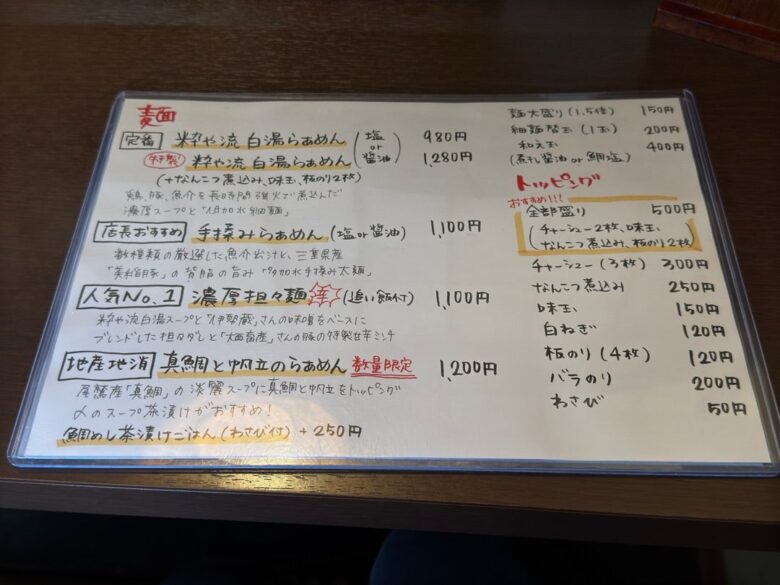 麺
定番 粋や流 白湯らぁめん (塩 or 醤油) 980円
特製! 粋や流 白湯らぁめん 1,280円
(+なんこつ煮込み、味玉、板のり2枚)
鶏、豚、魚介を長時間強火で煮込んだ
濃厚スープと「低加水細麺」
店長おすすめ 手揉みらぁめん (塩 or 醤油) 1,100円
数種類の厳選した魚介出汁と、三重県産
「美稲豚」の背脂の旨み「多加水手揉み太麺」
人気No.1 濃厚担々麺 辛 (追い飯付) 1,100円
粋や流白湯スープと「伊勢蔵」さんの味噌をベースに
ブレンドした担々ダレと「大西畜産」さんの豚の特製甘辛ミンチ
地産地消 真鯛と帆立のらぁめん 数量限定 1,200円
尾鷲産「真鯛」の淡麗スープに真鯛と帆立をトッピング
〆のスープ茶漬けがおすすめ!
鯛めし茶漬けごはん(わさび付) +250円
麺大盛り(1.5倍) 150円
細麺替玉(1玉) 200円
和え玉 400円
(煮干し醤油 or 鯛塩)
トッピング
おすすめ!!!
全部盛り 500円
(チャーシュー2枚、味玉、
なんこつ煮込み、板のり2枚)
チャーシュー(3枚) 300円
なんこつ煮込み 250円
味玉 150円
白ねぎ 120円
板のり(4枚) 120円
バラのり 200円
わさび 50円